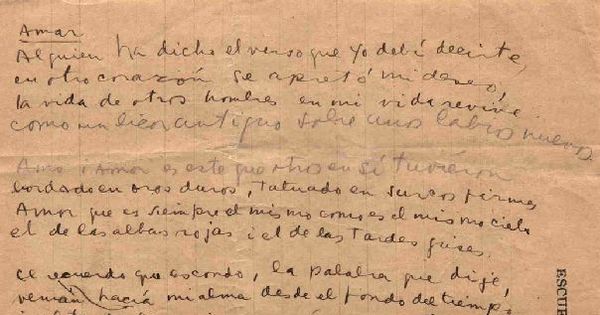 Amar
Alguien ha dicho el verso que yo debí decirte,
en otro corazón se apretó mi deseo,
la vida de otros hombres en mi vida revive
como un licor antiguo sobre unos labios nuevos.
Amo i amor es este que otros en sí tuvieron
bordado en oros duros, tatuado en surcos firmes
Amor que es siempre el mismo como es el mismo cielo
el de las albas rojas i el de las tardes grises.
el recuerdo que escondo, la palabra que dije,
venían hacia mi alma desde el fondo del tiempo
ESCUE